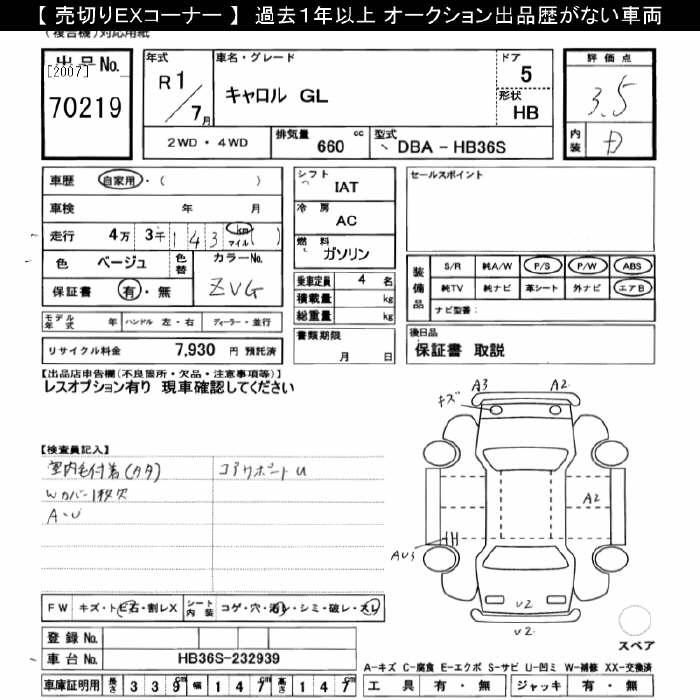 【 売切りEXコーナー 】 過去1年以上 オークション出品歴がない車両
(複合機)対応用紙
出品No.
[2007]
70219
年式
R1/7月
車名・グレード
キャロル GL
ドア
5
形状
HB
評価点
3.5
内装
D
2WD・4WD
排気量
660 cc
型式
DBA - HB36S
車歴 自家用・( )
車検 年 月
走行 4万 3千 1 4 3 km マイル ( )
色 ベージュ
色替
カラーNo.
ZVG
保証書 有・無
モデル年式 年
ハンドル 左・右
ディーラー・並行
リサイクル料金 7,930 円 預託済
シフト
IAT
冷房
AC
燃料
ガソリン
乗車定員 4 名
積載量 kg
総重量 kg
書類期限
月 日
セールスポイント
装備品
S/R 純A/W P/S P/W ABS
純TV 純ナビ 革シート 外ナビ エアB
ナビ型番:
後日品
保証書 取説
【出品店申告欄(不良箇所・欠品・注意事項等)】
レスオプション有り 現車確認してください
【検査員記入】
室内毛付着(タタ)
コアサポートU
Wカバー1枚欠
A・U
A3
A2
キズ
A2
AU3
U2
U2
スペア
FW キズ・ト石・割レX
シート内装 コゲ・穴・汚レ・シミ・破レ・スレ
登録No.
車台No. HB36S-232939
車庫証明用 長さ 3 3 9 cm 幅 1 4 7 cm 高さ 1 4 7 cm
A-キズ C-腐食 E-エクボ S-サビ U-凹ミ W-補修 XX-交換済
工具 有・無 ジャッキ 有・無